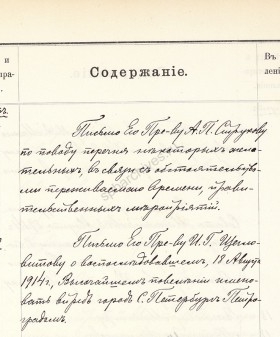 и
Въ
Содержаніе.
Письмо Его Пр-ву А.П. Струкову
по поводу перечня некоторыхъ жела-
тельныхъ, въ связи съ обстоятельства-
ми переживаемаго времени, прави-
тельственныхъ мѣропріятій.
Письмо Его Пр-ву И.Г. Щегло-
витову о воспослѣдовавшемъ, 18 Августа
1914 г., Высочайшемъ повелѣніи имено-
вать впредь городъ С. Петербургъ Петро-
градомъ.